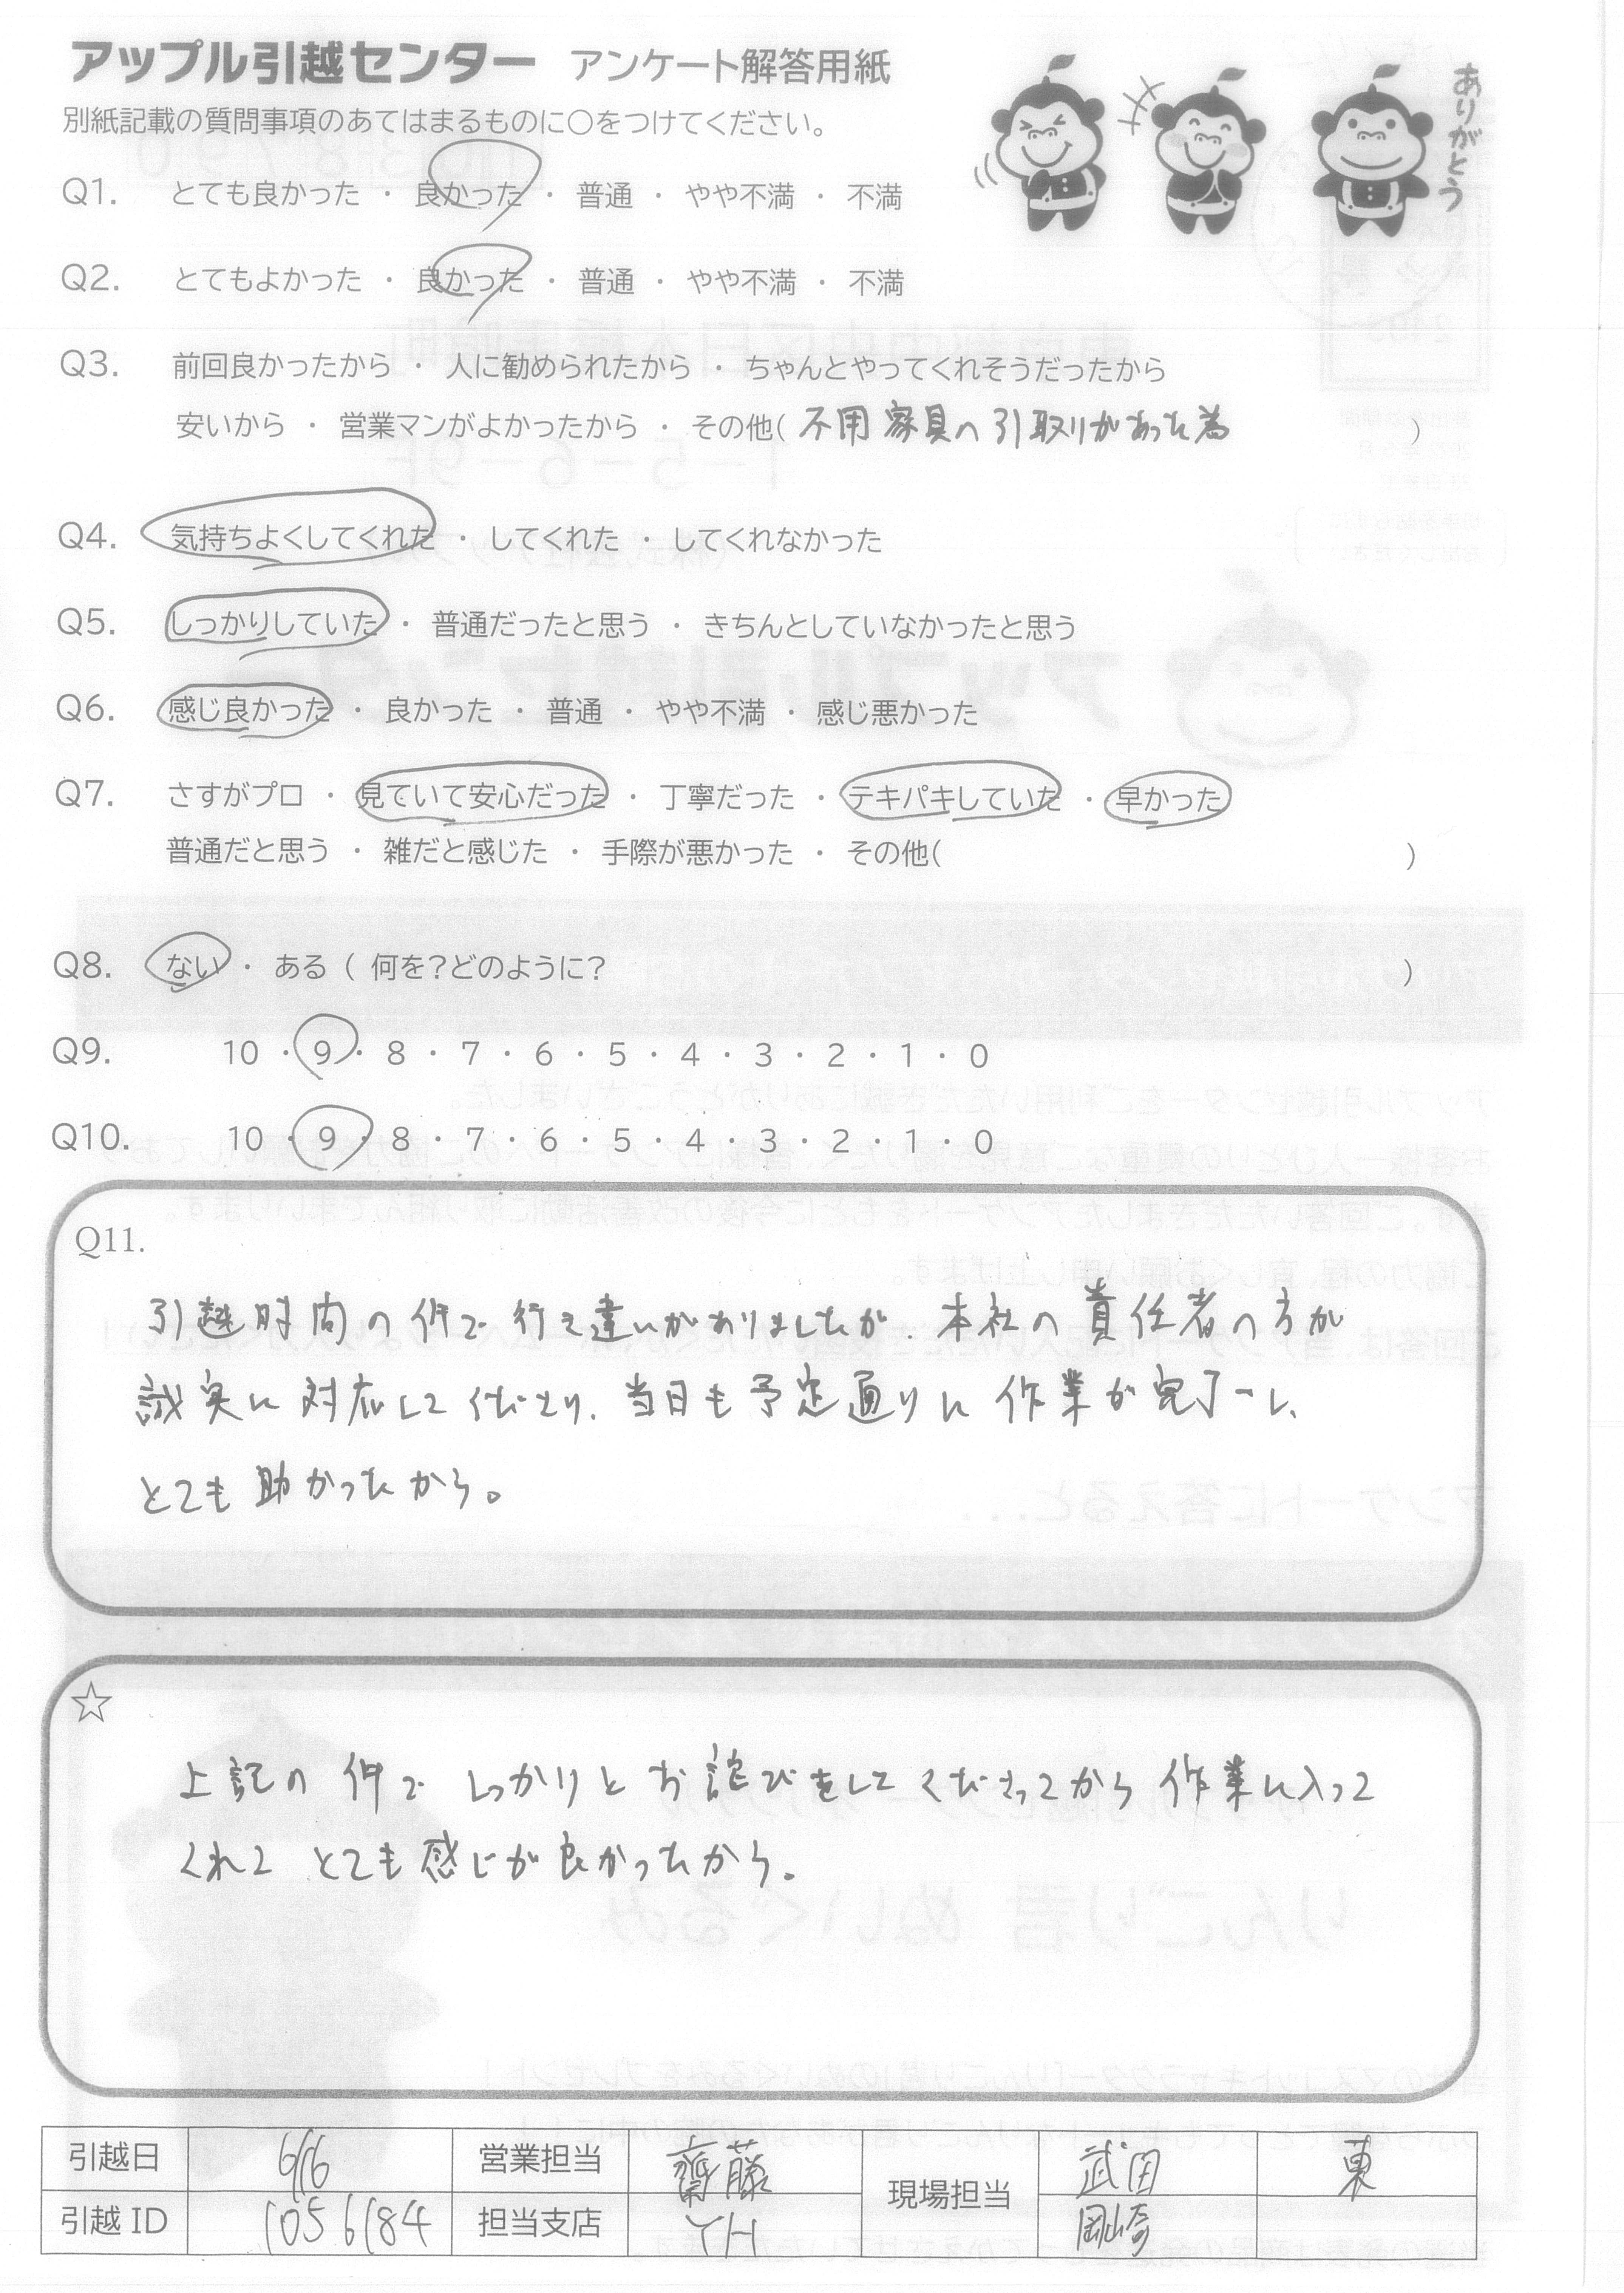 アップル引越センター アンケート解答用紙
ありがとう
別紙記載の質問事項のあてはまるものに○をつけてください。
Q1. とても良かった ・ 良かった ・ 普通 ・ やや不満 ・ 不満
Q2. とてもよかった ・ 良かった ・ 普通 ・ やや不満 ・ 不満
Q3. 前回良かったから ・ 人に勧められたから ・ ちゃんとやってくれそうだったから
安いから ・ 営業マンがよかったから ・ その他( 不用家具の引取りがあった為 )
Q4. 気持ちよくしてくれた ・ してくれた ・ してくれなかった
Q5. しっかりしていた ・ 普通だったと思う ・ きちんとしていなかったと思う
Q6. 感じ良かった ・ 良かった ・ 普通 ・ やや不満 ・ 感じ悪かった
Q7. さすがプロ ・ 見ていて安心だった ・ 丁寧だった ・ テキパキしていた ・ 早かった
普通だと思う ・ 雑だと感じた ・ 手際が悪かった ・ その他( )
Q8. ない ・ ある ( 何を?どのように? )
Q9. 10 ・ 9 ・ 8 ・ 7 ・ 6 ・ 5 ・ 4 ・ 3 ・ 2 ・ 1 ・ 0
Q10. 10 ・ 9 ・ 8 ・ 7 ・ 6 ・ 5 ・ 4 ・ 3 ・ 2 ・ 1 ・ 0
Q11.
引越時間の件で行き違いがありましたが、本社の責任者の方が
誠実に対応してくださり、当日も予定通りに作業が完了し、
とても助かったから。
☆
上記の件でしっかりとお詫びをしてくださってから作業に入って
くれて とても感じが良かったから。
引越日 6/16 営業担当 齋藤 現場担当 武田 東
引越ID 1056184 担当支店 YH 岡崎